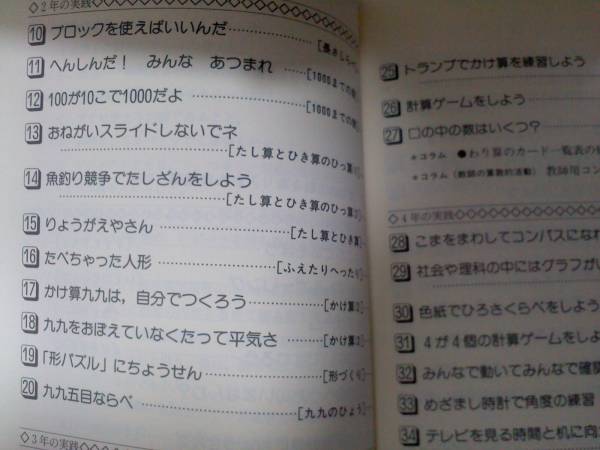 ◇2年の実践◇◇◇◇◇◇◇◇◇
10 ブロックを使えばいいんだ……[長さしらべ]
11 へんしんだ！ みんな あつまれ……[1000までの数]
12 100が10こで1000だよ……[1000までの数]
13 おねがいスライドしないでネ
……[たし算とひき算のひっ算]
14 魚釣り競争でたしざんをしよう
……[たし算とひき算のひっ算]
15 りょうがえやさん……[たし算とひき算]
16 たべちゃった人形……[ふえたりへったり]
17 かけ算九九は，自分でつくろう……[かけ算]
18 九九をおぼえていなくたって平気さ……[かけ算]
19 「形パズル」にちょうせん……[形づくり]
20 九九五目ならべ……[九九のひょう]
◇3年の実践
25 トランプでかけ算を練習しよう
26 計算ゲームをしよう
27 □の中の数はいくつ？
＊コラム ●わり算のカード一覧表の
＊コラム（教師の算数的活動） 教師用コン
◇4年の実践◇◇◇◇◇◇◇◇◇
28 こまをまわしてコンパスになれ
29 社会や理科の中にはグラフが
30 色紙でひろさくらべをしよう
31 4が4個の計算ゲームをしよ
32 みんなで動いてみんなで確
33 めざまし時計で角度の練習
34 テレビを見る時間と机に向